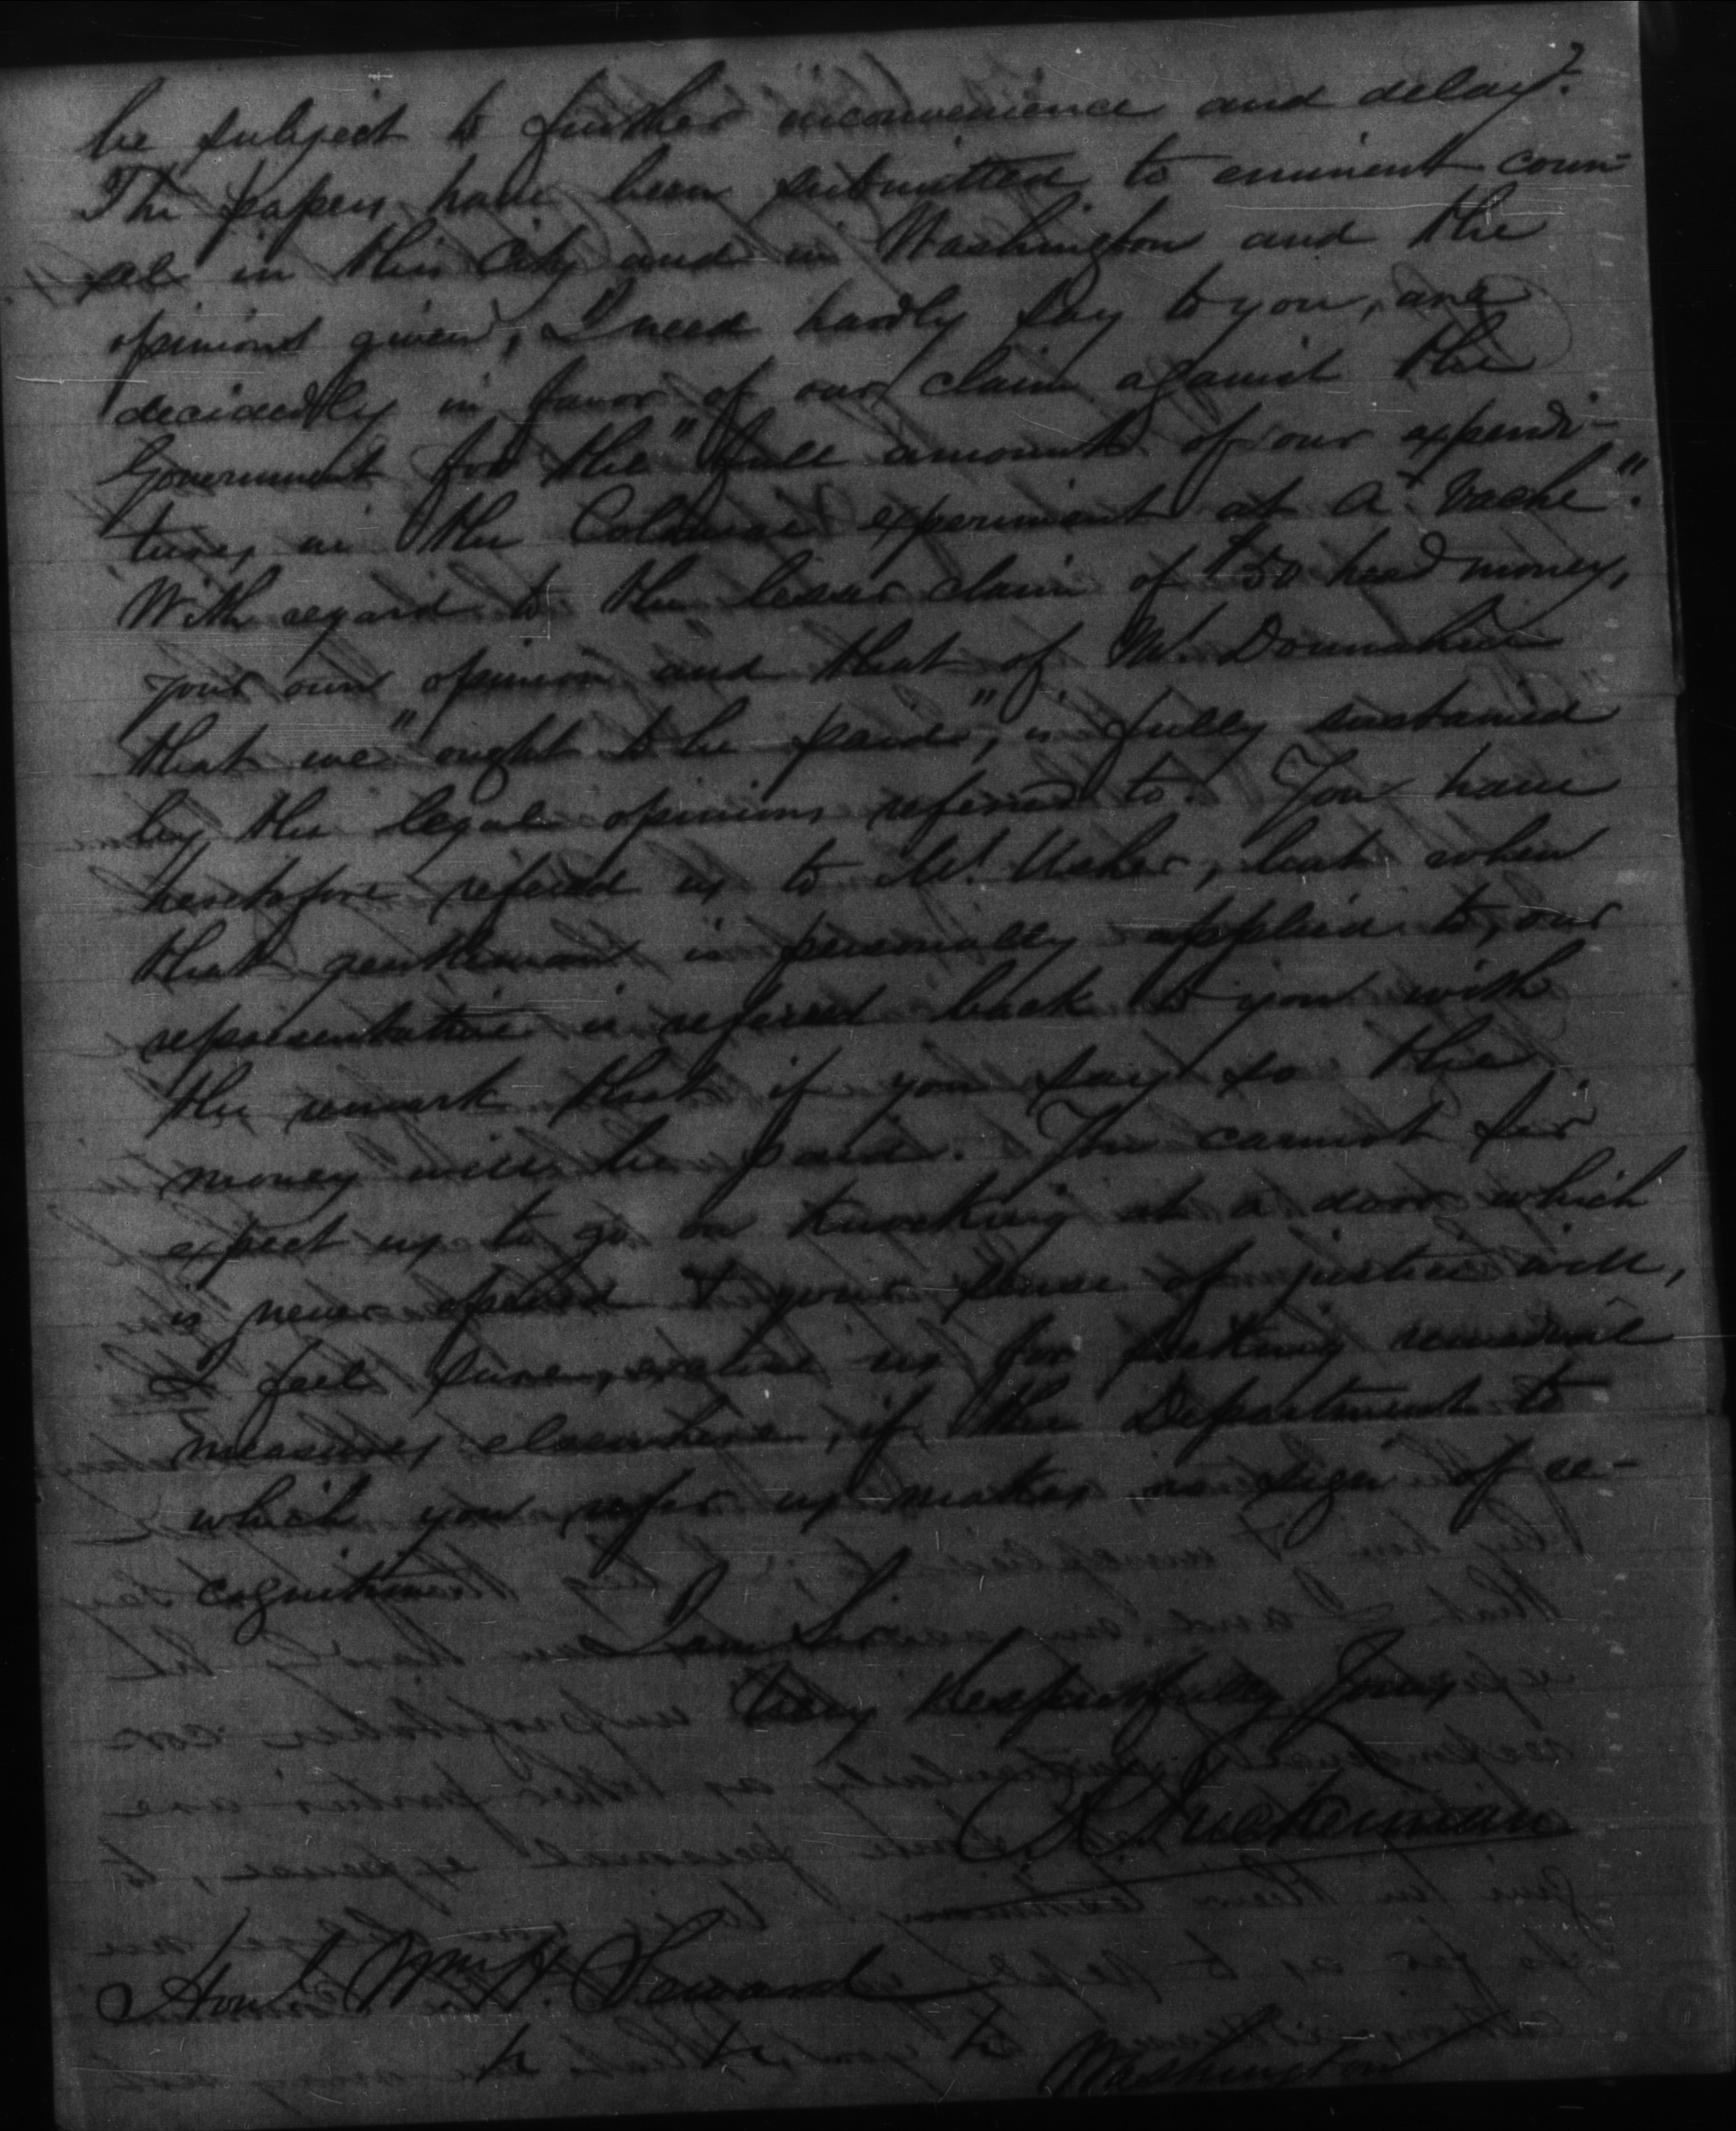 be subject to further inconvenience and delay?
The papers have been submitted to eminent coun-
sel in this City and in Washington and the
opinions given, I need hardly say to you, are
decidedly in favor of our claim against the
Government for the "full amount of our expendi-
tures in the Colonial experiment at A'Vache".
With regard to the lesser claim of $50 head money,
your own opinion and that of Mr. Donnahue
that we "ought to be paid", is fully sustained
by the legal opinions referred to. You have
heretofore referred us to Mr. Usher, but when
that gentleman is personally applied to, our
representative is referred back to you with
the remark that if you say so the
money will be paid. You cannot Sir
expect us to go on knocking at a door which
is never opened & your sense of justice will,
I feel sure, excuse us for seeking remedial
measures elsewhere, if the Department to
which you refer us makes no sign of re-
cognition
I am Sir
Very Respectfully Yours
Tuckerman
Honl Wm H. Seward
Washington